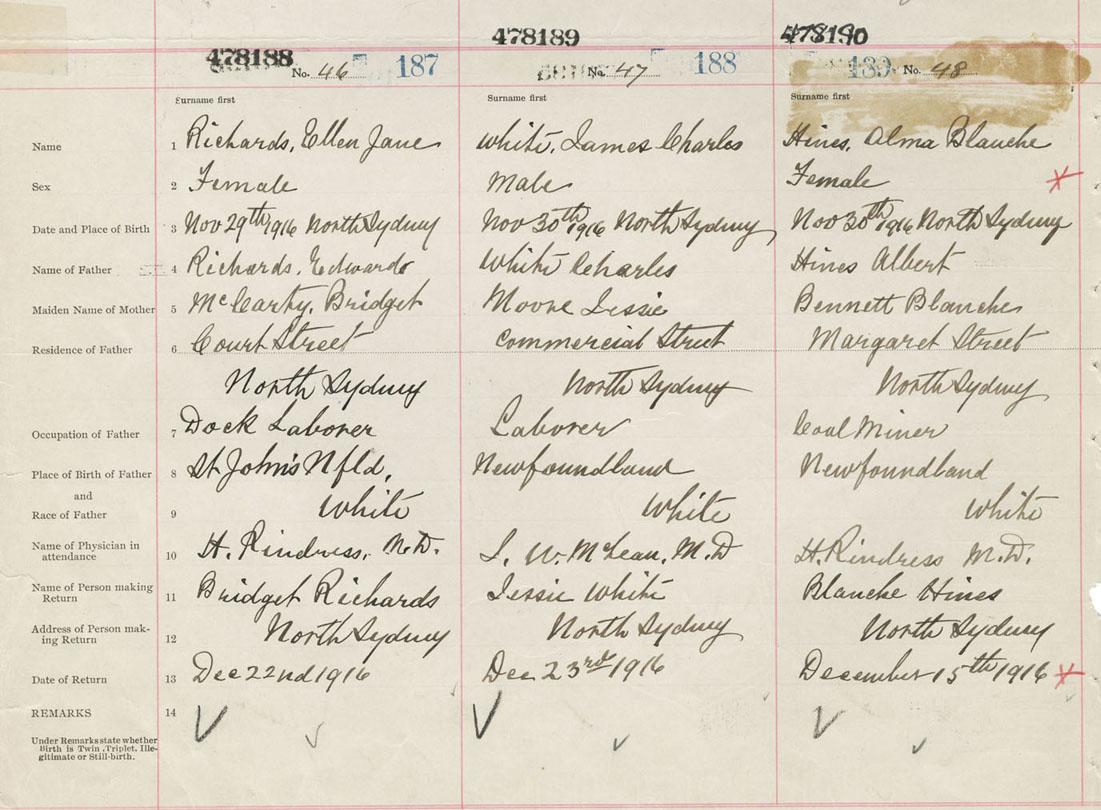 478188 478189 478190
No. 46 187 No. 47 188 189 No. 48
Surname first Surname first Surname first
Name 1 Richards, Ellen Jane White, James Charles Hines, Alma Blanche
Sex 2 Female Male Female
Date and Place of Birth 3 Nov 29th 1916 North Sydney Nov 30th 1916 North Sydney Nov 30th 1916 North Sydney
Name of Father 4 Richards, Edward White Charles Hines Albert
Maiden Name of Mother 5 McCarthy, Bridget Moore Jessie Bennett Blanche
Residence of Father 6 Court Street Commercial Street Margaret Street
North Sydney North Sydney North Sydney
Occupation of Father 7 Dock Laborer Laborer Coal Miner
Place of Birth of Father 8 St John's Nfld, Newfoundland Newfoundland
and
Race of Father 9 White White White
Name of Physician in
attendance 10 H. Rindress, M.D. J. W. McLean, M.D H. Rindress M.D.
Name of Person making
Return 11 Bridget Richards Jessie White Blanche Hines
Address of Person mak-
ing Return 12 North Sydney North Sydney North Sydney
Date of Return 13 Dec 22nd 1916 Dec 23rd 1916 December 15th 1916
REMARKS 14
Under Remarks state whether
Birth is Twin, Triplet, Ille-
gitimate or Still-birth.